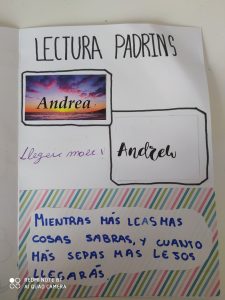 LECTURA PADRINS
Andrea
Llegeix molt!
Andrew
MIENTRAS MÁS LEAS MAS
COSAS SABRAS, Y CUANTO
MÁS SEPAS MÁS LEJOS
LLEGARÁS.
REDMI NOTE 8T
AI QUAD CAMERA